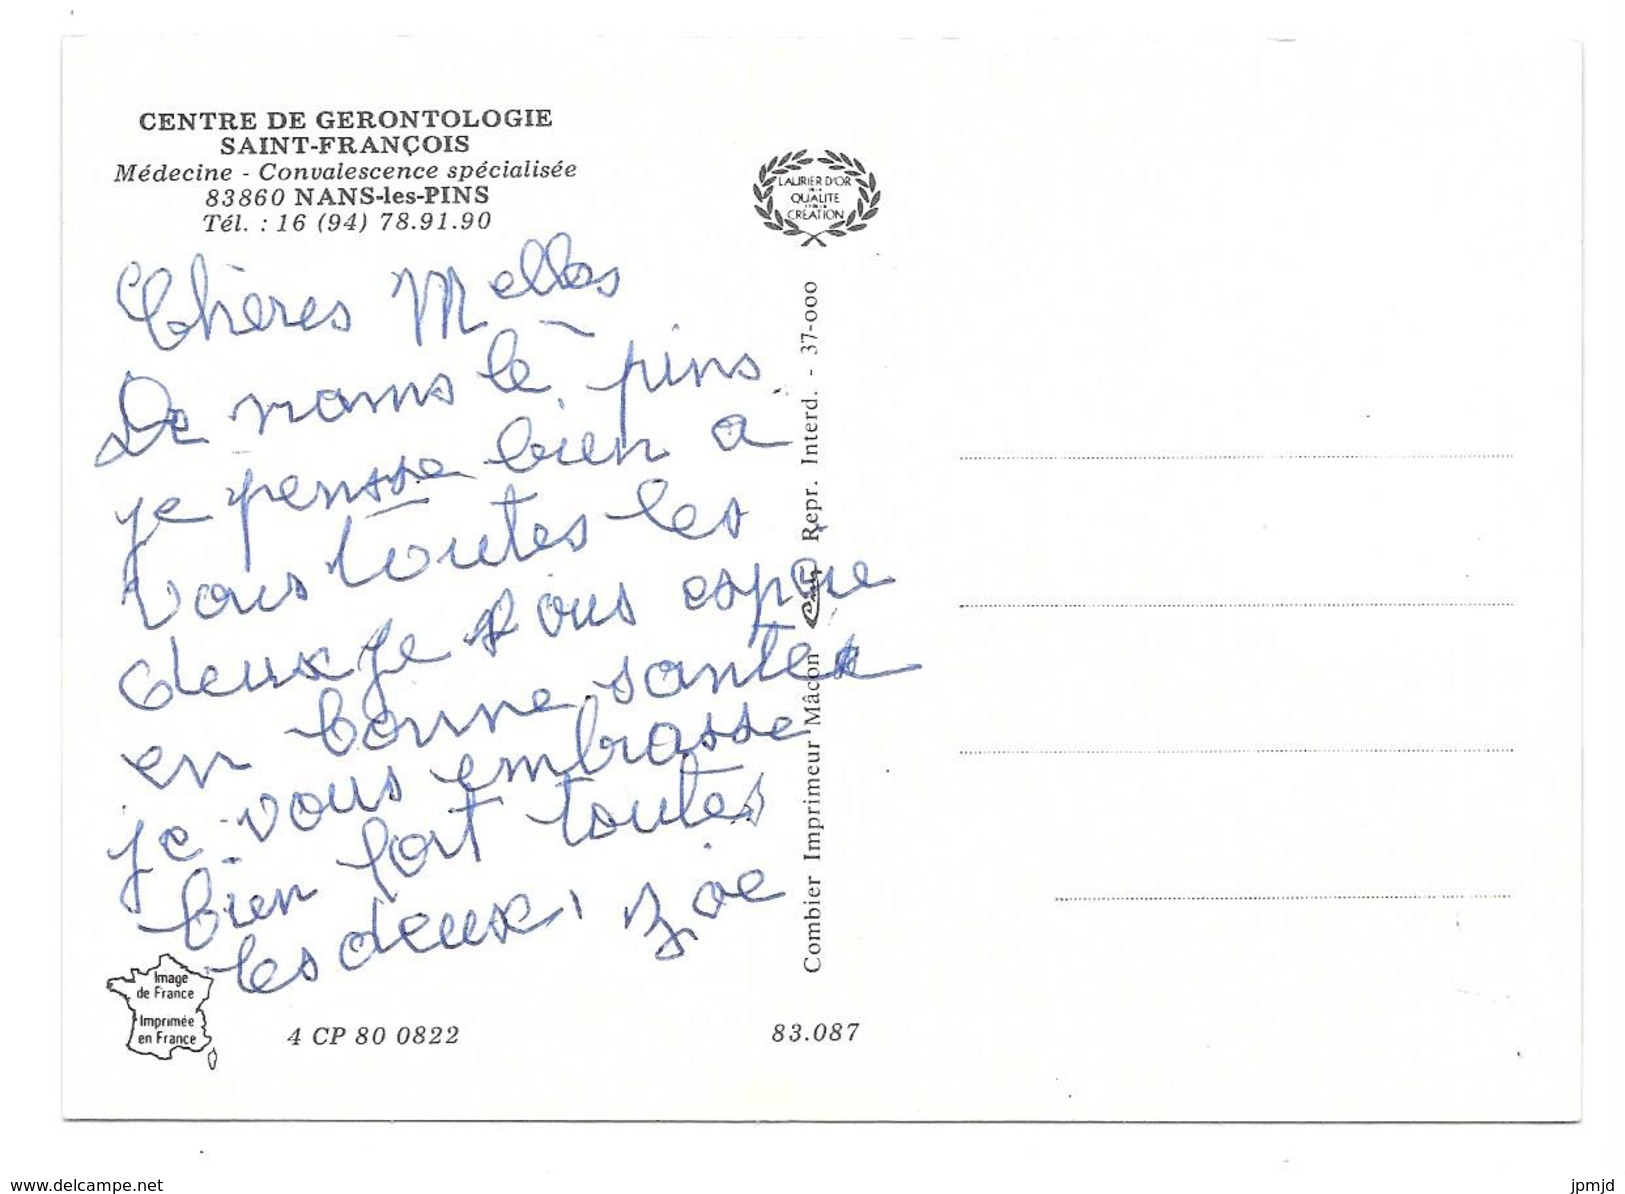 CENTRE DE GERONTOLOGIE
SAINT-FRANÇOIS
Médecine - Convalescence spécialisée
83860 NANS-les-PINS
Tél. : 16 (94) 78.91.90
LAURIER D'OR
DE LA
QUALITE
ET DE LA
CREATION
Chères Melles
De nans lê pins
je pensse bien a
vous toutes les
deux je vous espère
en bonne santée
je vous embrasse
bien fort toutes
les deux, Zoé
Combier Imprimeur Mâcon Cim Repr. Interd. - 37-000
Image
de France
Imprimée
en France
4 CP 80 0822
83.087
www.delcampe.net
jpmjd